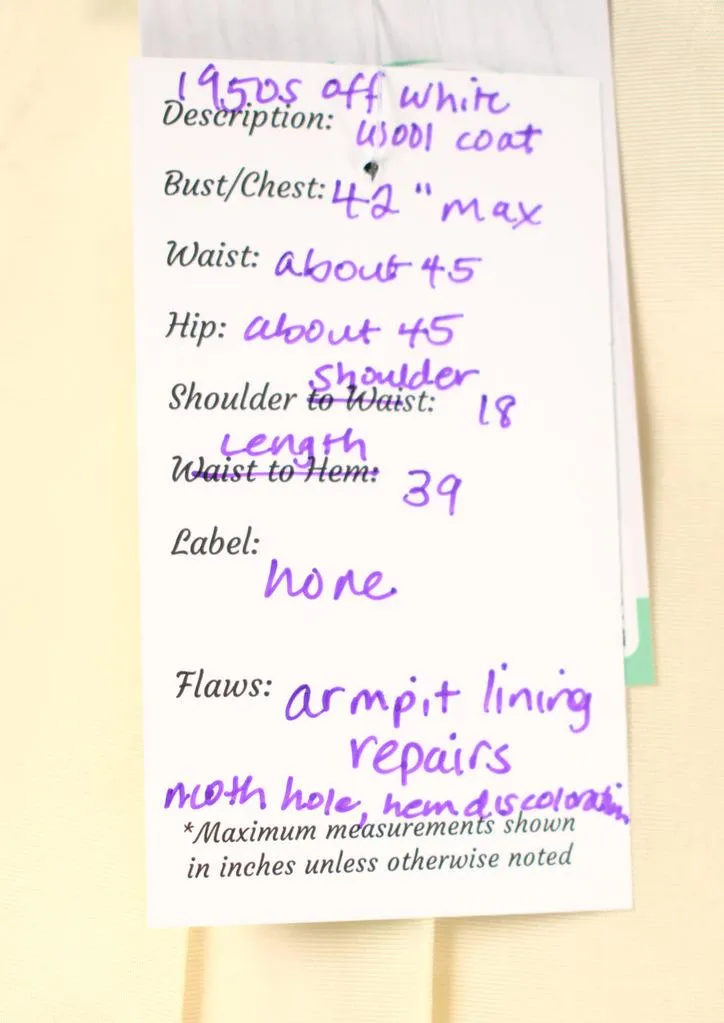 1950s off white
Description: wool coat
Bust/Chest: 42" max
Waist: about 45
Hip: about 45
shoulder
Shoulder to Waist: 18
Length
Waist to Hem: 39
Label:
none
Flaws: armpit lining
repairs
moth hole, hem discoloration
*Maximum measurements shown
in inches unless otherwise noted